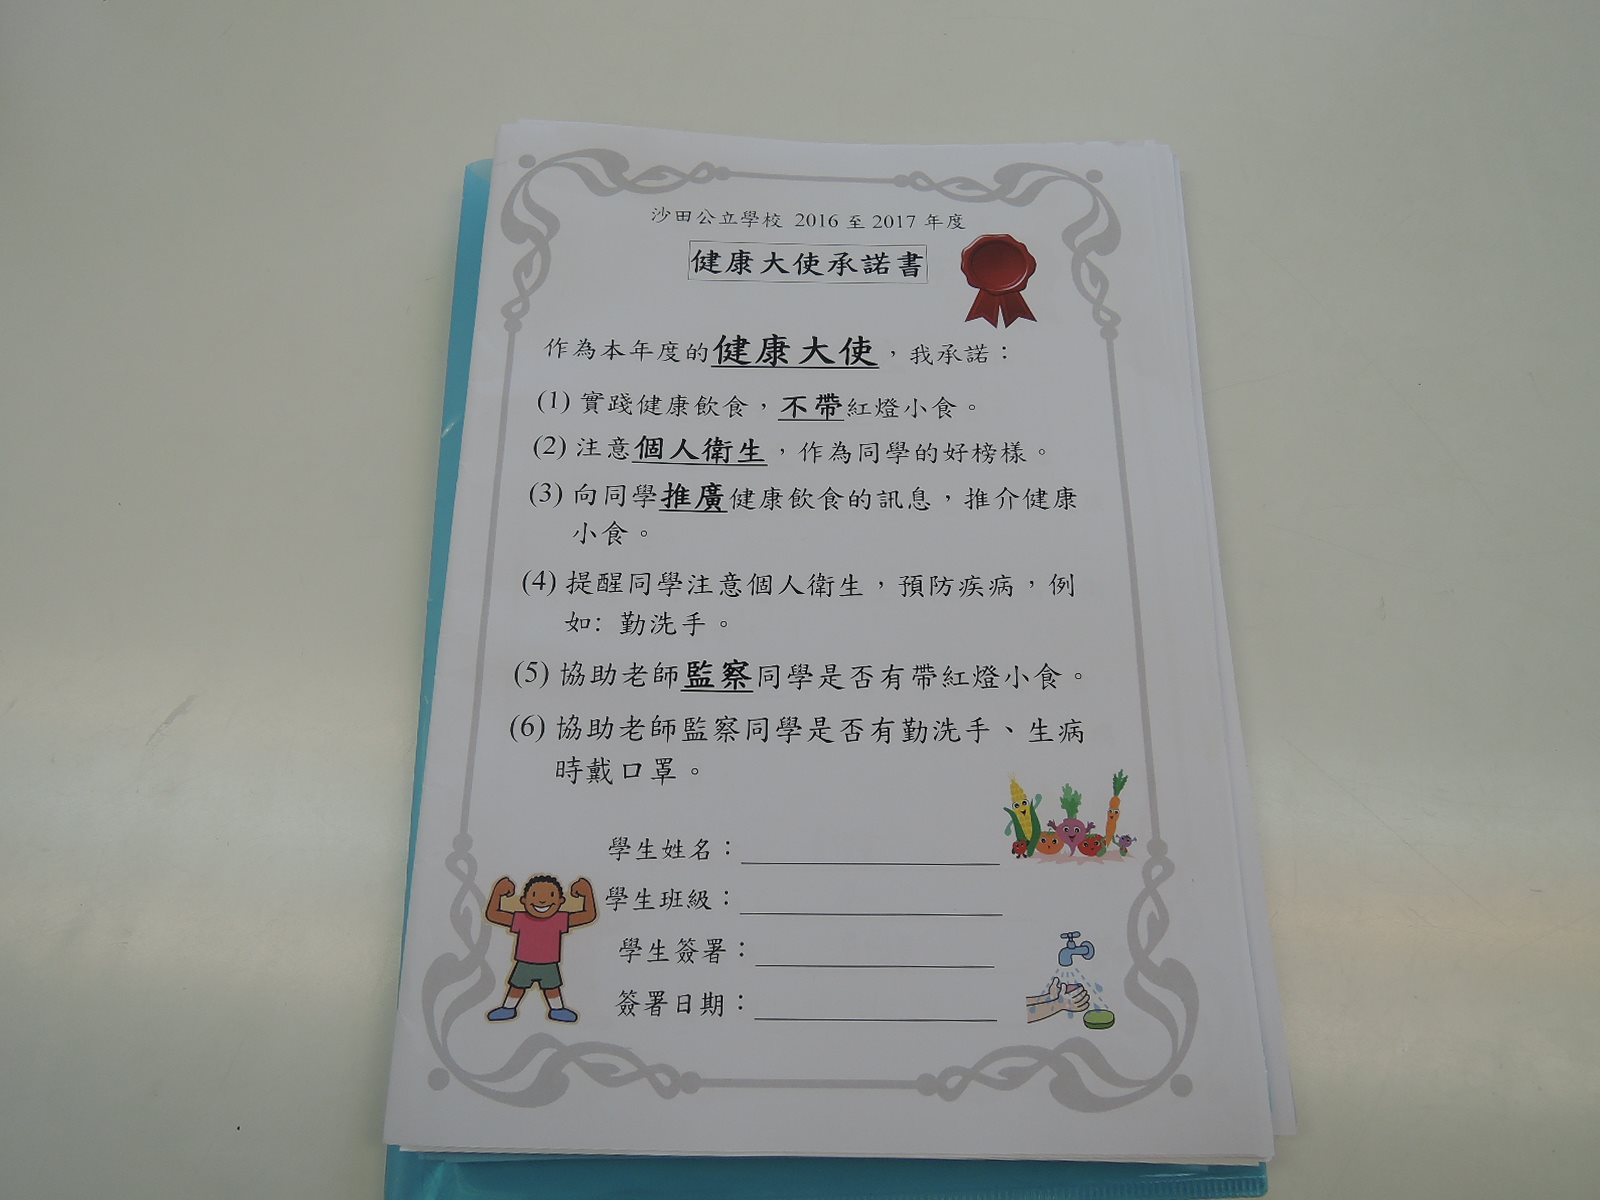 沙田公立學校 2016 至 2017 年度
健康大使承諾書
作為本年度的健康大使，我承諾：
(1) 實踐健康飲食，不帶紅燈小食。
(2) 注意個人衛生，作為同學的好榜樣。
(3) 向同學推廣健康飲食的訊息，推介健康
小食。
(4) 提醒同學注意個人衛生，預防疾病，例
如: 勤洗手。
(5) 協助老師監察同學是否有帶紅燈小食。
(6) 協助老師監察同學是否有勤洗手、生病
時戴口罩。
學生姓名：
學生班級：
學生簽署：
簽署日期：